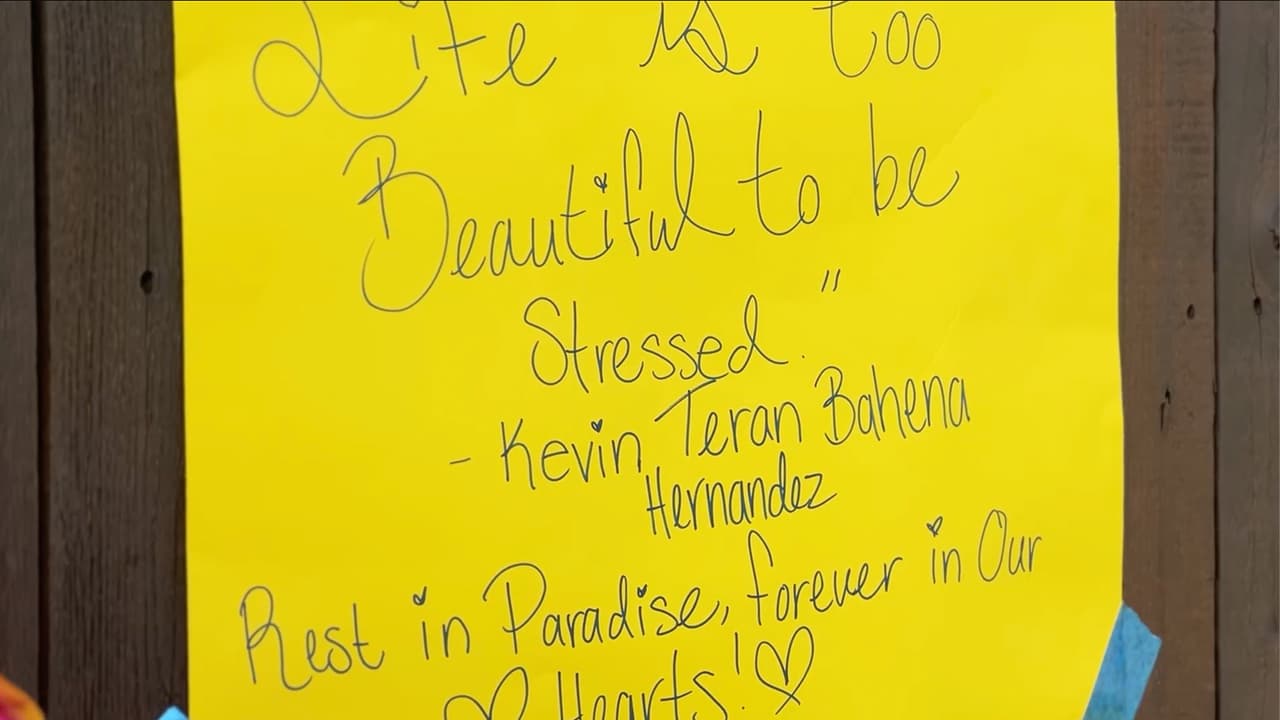 Life is too
Beautiful to be
Stressed."
- Kevin Teran Bahena
Hernandez
Rest in Paradise, forever in Our
♡ Hearts! ♡